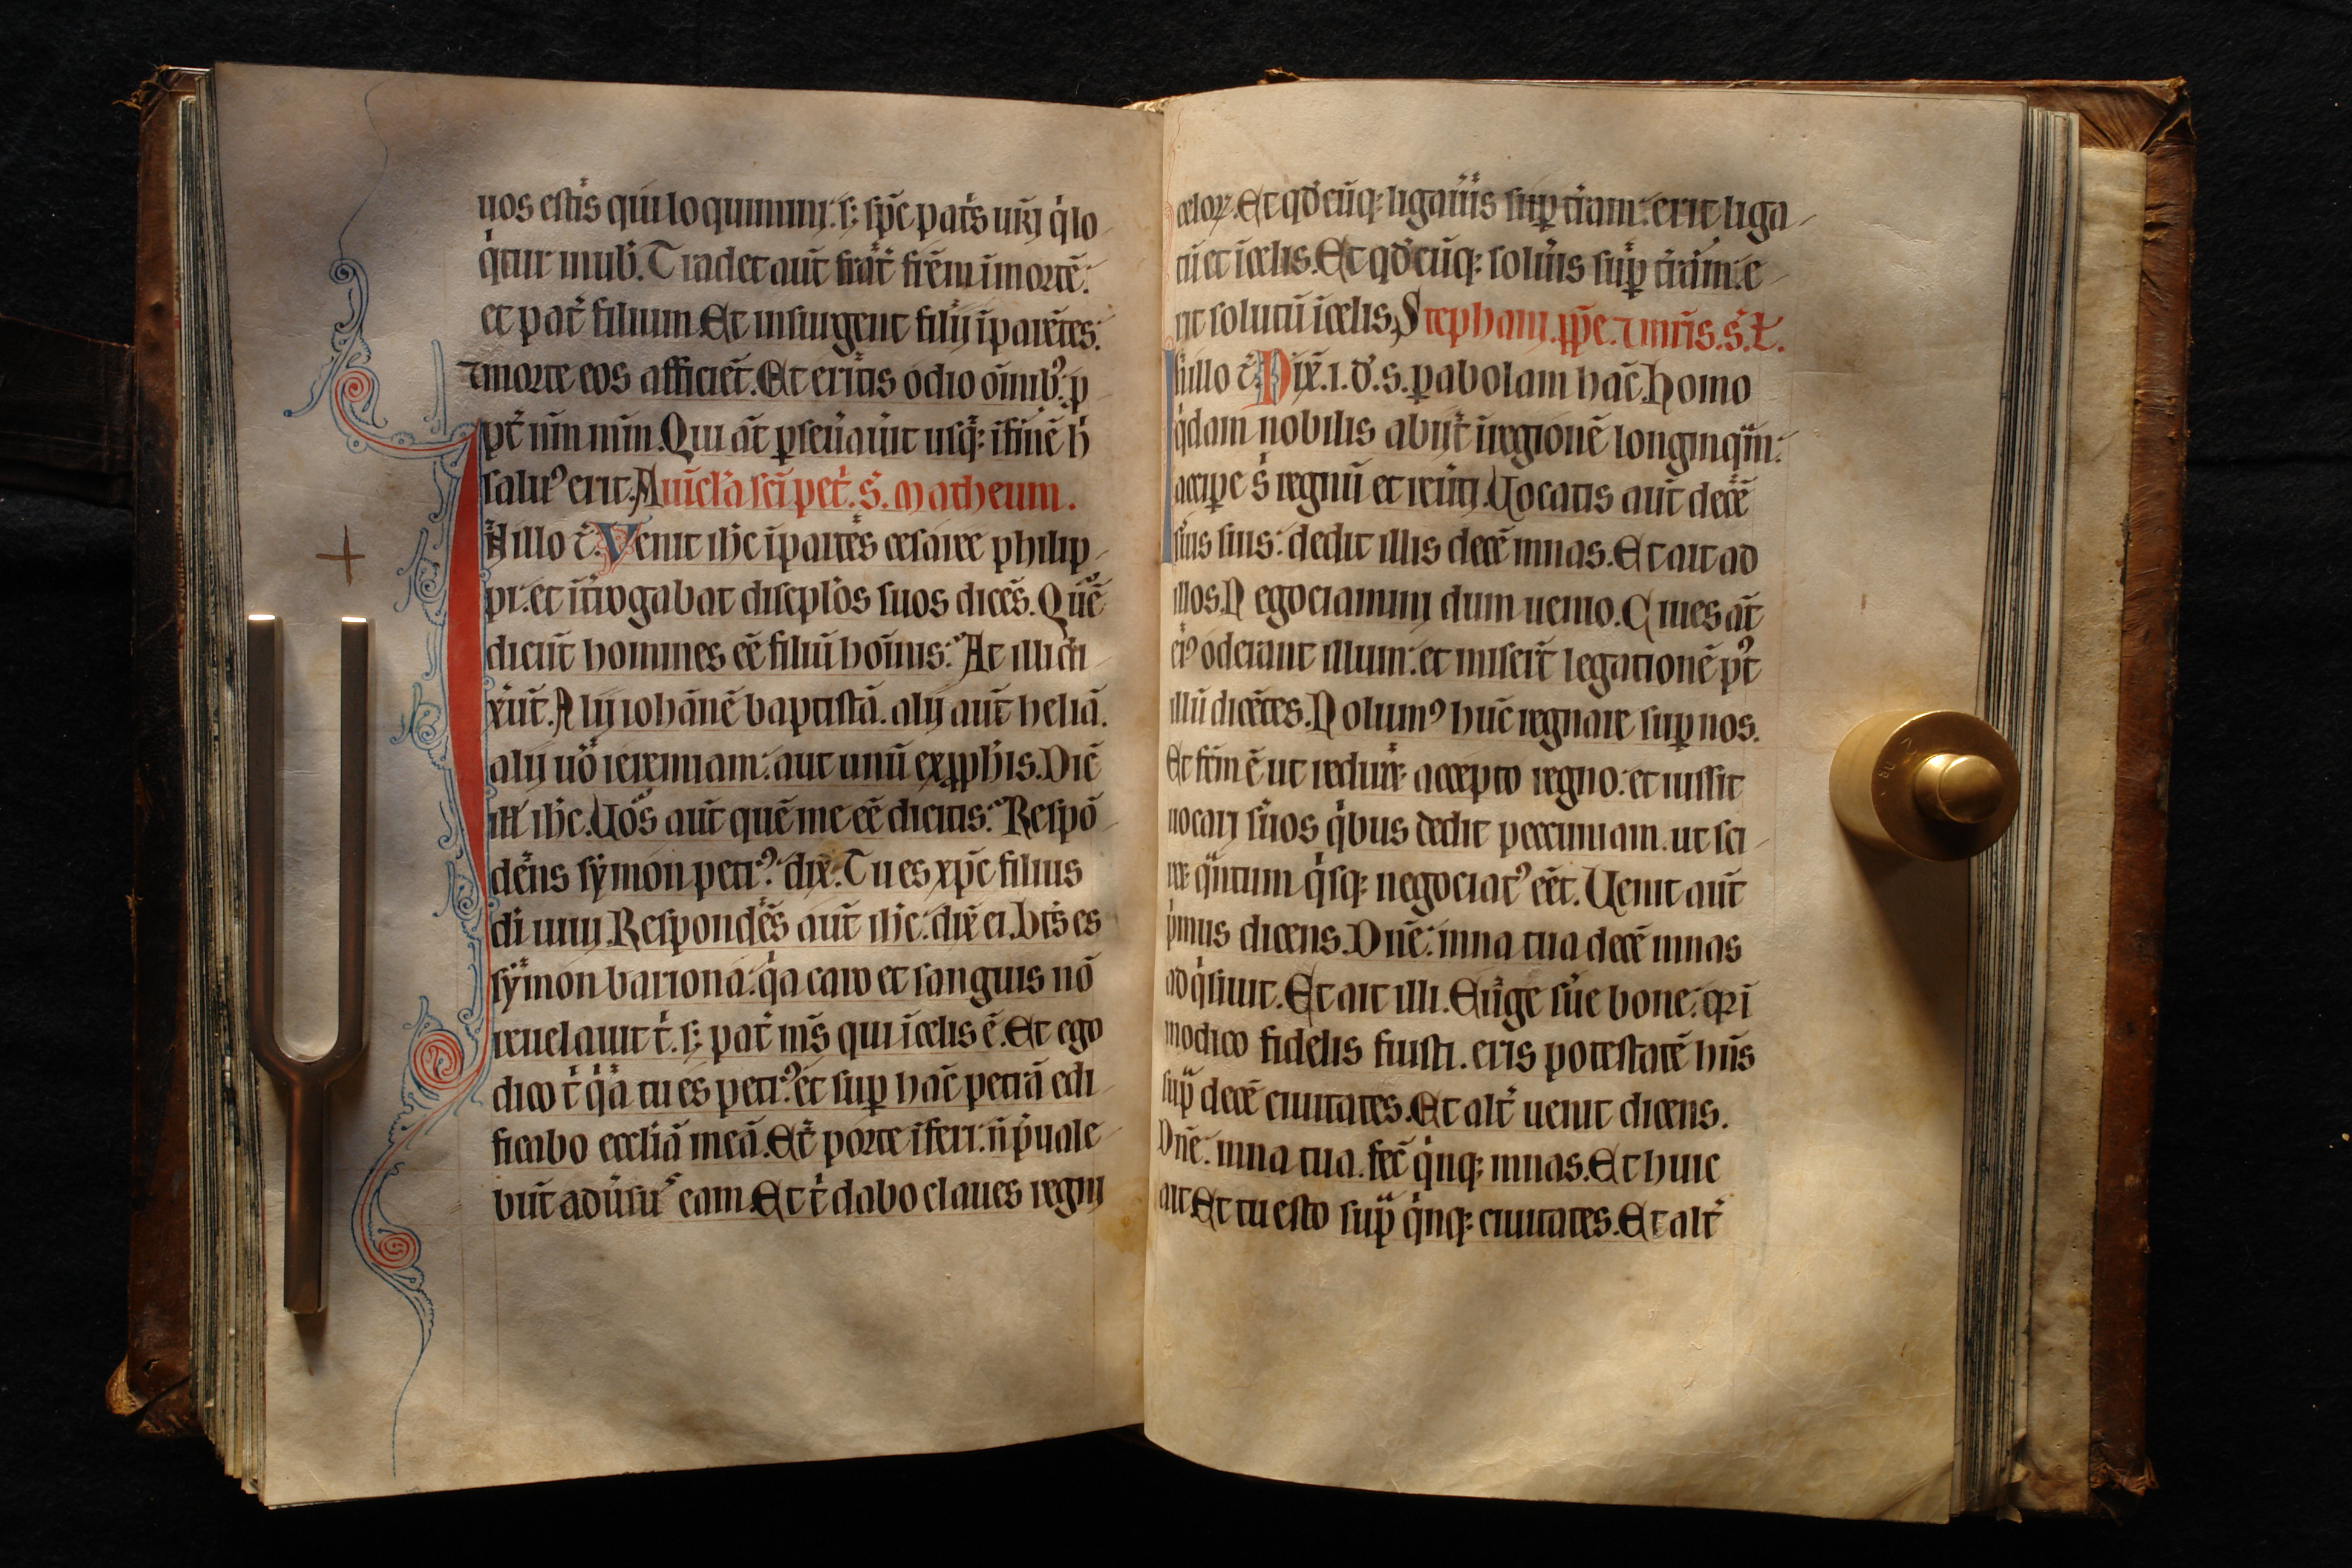 uos estis qui loquimini. s; sp̄c pat̉s ur̄i q̇ lo
q̇tur inuob̄. Tradet aut̄ frat̄ fr̄em īmortē:
et pat̄ filium. Et insurgent filij īparētes:
⁊morte eos afficiēt. Et eritis odio om̄ib; p
pt̄ nm̄ mm̄. Qui āt ꝑseu̇au̇it usq; ifinē h̄
salu᷒ erit. Auicl̉a sc̄i pet̉. S. Matheum.
Nillo t̄. Venit ih̄c īpartes cesaree philip
pi. et it̄rogabat discipl̉os suos dicēs. Quē
dicūt homines eē filiū hoīnis: At illi di
xūt. Alij iohānē baptistā. alij aut̄ heliā.
alij uō ieremiam: aut unū ex ꝓph̄is. Dic̄
ill̉ ih̄c. Uos aut̄ quē me eē dicitis: Respō
dēns sẏmon petr᷒: dix̄. Tu es xp̄c filius
di̅ uiui. Respondēs aut̄ ih̄c: dix̄ ei. Bt̄s es
sẏmon bariona: q̇a caro et sanguis nō
reuelauit t̉. s; pat̉ m̄s qui īcelis ē. Et ego
dico t̉ q̇a tu es petr᷒: et suꝑ hāc petrā edi
ficabo eccliā meā. Et̄ porte īferi: n̄ p̉uale
būt adūsu᷒ eam. Et t̉ dabo claues regni
celoꝝ. Et qd̉cūq; ligau̇is suꝑ t̄ram: erit liga
tū et īcelis. Et qd̉cūq; solu̇is suꝑ t̄ram: e
rit solutū īcelis. Stephani. ꝓp̄e. ⁊ m̄ris. S. L.
Nillo t̄. Dix̄. i. d̉. s. ꝑabolam hāc. Homo
q̇dam nobilis abiit īregionē longinq̄m:
accipe s̉ regnū et reu̇ti. Uocatis aut̄ decē
s̉uis suis: dedit illis decē mnas. Et ait ad
illos. Negociamini dum uenio. Ciues āt
ei᷒ oderant illum: et miser̄t legationē p᷒t
illū dicētes. Nolum᷒ hūc regnare suꝑ nos.
Et fcm̄ ē ut redir̄et accepto regno: et iussit
uocari s̉uos q̇bus dedit peccuniam. ut sci
ret q̄ntum q̇sq; negociat᷒ eēt. Uenit aut̄
p̉mus dicens. Dn̄e: mna tua decē mnas
adq̇siuit. Et ait illi. Euge s̉ue bone: qr ī
modico fidelis fuisti. eris potestatē hn̄s
sup̄ decē ciuitates. Et alt̉ uenit dicens.
Dn̄e: mna tua. fec̄ q̇nq; mnas. Et huic
ait. Et tu esto sup̄ q̇nq; ciuitates. Et alt̉